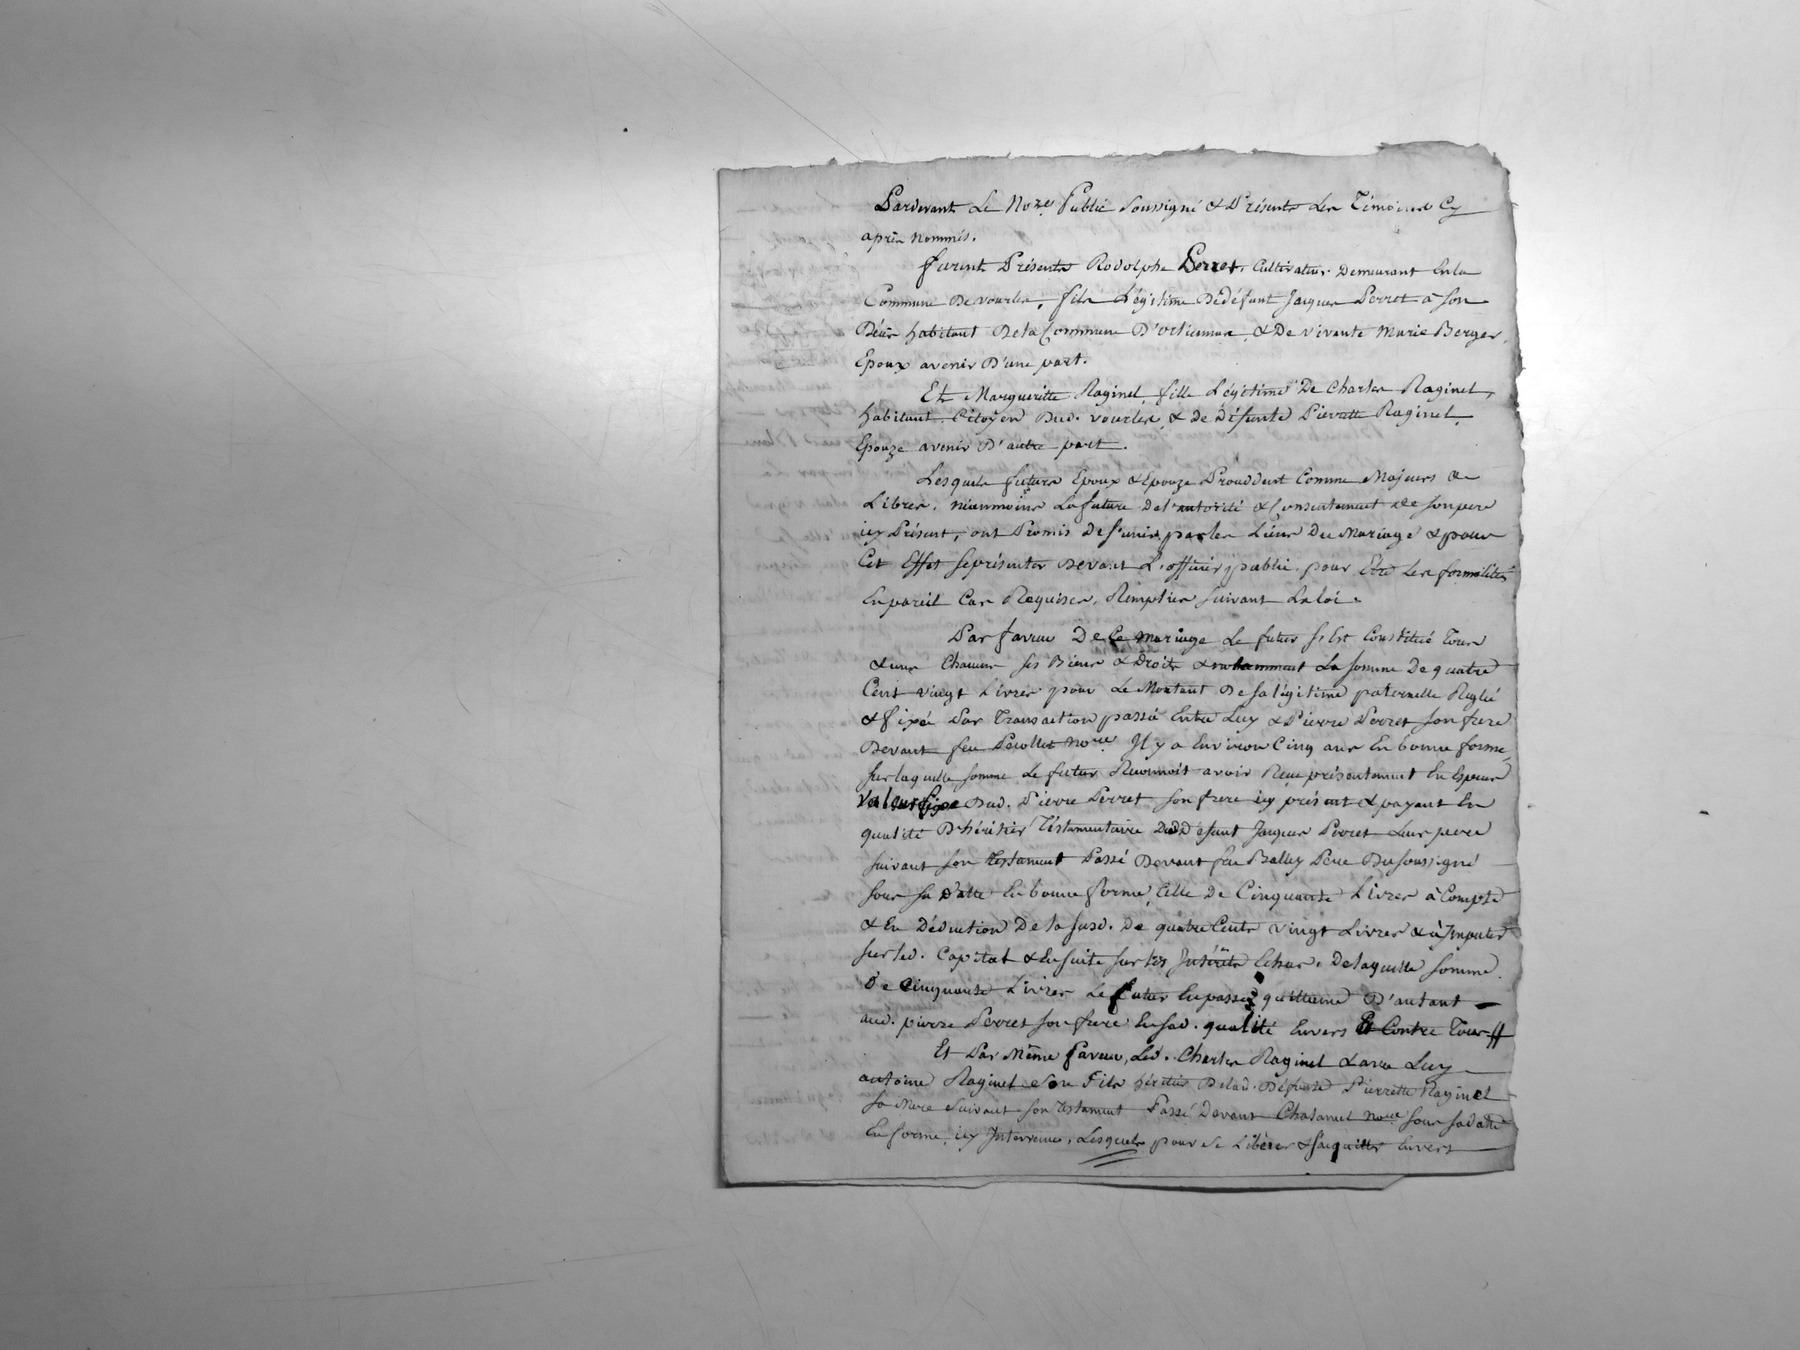 Pardevant Le No.re Public Soussigné & Présents Les Témoins Cy
après nommés.
furent Présents Rodolphe Perret, Cultivateur Demeurant En la
Commune De vourles, fils Légitime De défunt Jaques Perret à Son
Décès habitant De la Commune D'orliennas, & De vivante Marie Berger,
Epoux avenir D'une part.
Et Margueritte Raginel, fille Légitime De Charles Raginel,
habitant Citoyen Dud. vourles & de Défunte Pierrette Raginel,
Epouze avenir D'autre part.
Lesquels futurs Epoux & Epouze Procédent Comme Majeurs &
Libres, néanmoins La future De l'autorité & Consentement de Son pere
icy Présent, ont Promis De S'unir par les Liens Du Mariage & pour
Cet Effet Se présenter Devant L'officier public pour Etre Les formalités
En pareil Cas Requises, Remplies Suivant La loi.
Par faveur De Ce Mariage Le futur S'Est Constitué Tous
& uns Chacuns Ses Biens & Droits & notamment La Somme De quatre
Cent vingt Livres pour Le Montant De Sa légitime paternelle Réglé
& fixée Par Transaction passée Entre Luy & Pierre Perret Son frere
Devant feu no.re Il y a Environ Cinq ans En bonne forme,
Sur laquelle Somme Le futur Reconnoit avoir Reçu présentement En Espèces
valeur fixe Dud. Pierre Perret Son frere icy présent & payant En
qualité D'héritier Testamentaire Dud. Défunt Jaques Perret Leur pere
Suivant Son testament Passé Devant feu Balley Pere Du Soussigné
Sous Sa Datte En bonne forme, Celle De Cinquante Livres à Compte
& En Déduction De la Susd. De quatre Cents vingt Livres & à Imputer
Sur led. Capital & Ensuite Sur les Intérêts Echus. De laquelle Somme
De Cinquante Livres Le futur En passe quittance D'autant
aud. pierre Perret Son frere En Sad. qualité Envers Et Contre Tous //
Et Par Même faveur, Led. Charles Raginel & avec Luy
antoine Raginel Son Fils héritier De lad. Défunte Pierrette Raginel
Sa Mere Suivant Son testament Passé Devant Chasanel no.re Sous Sa datte
En forme, icy Intervenus, Lesquels pour Se Libérer & S'acquitter Envers